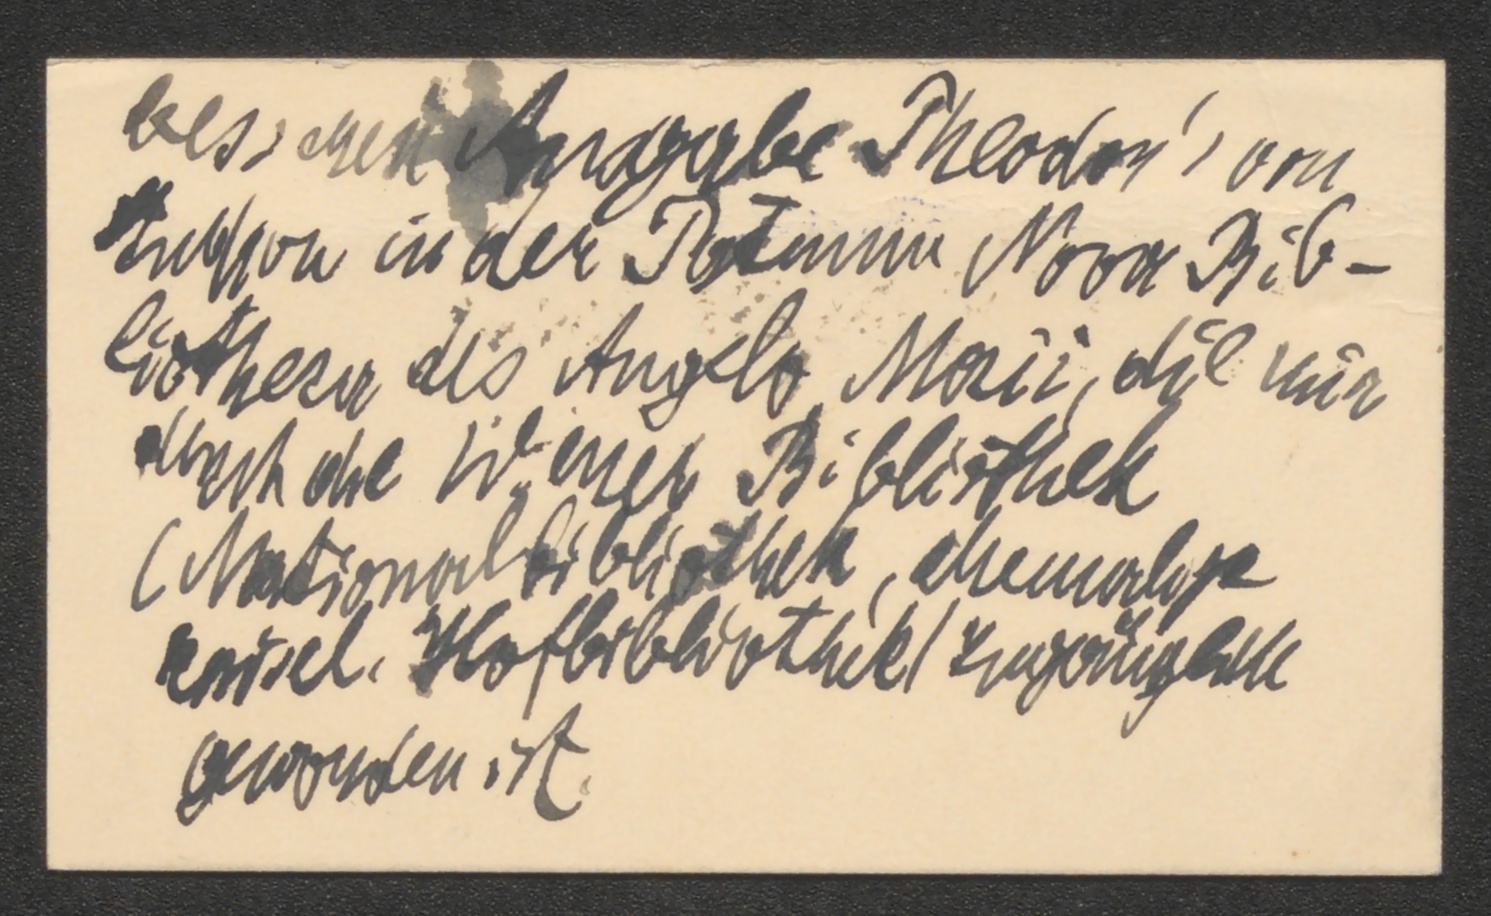 besseren Ausgabe Theodor's von
Studion in der Patrum Nova Bib-
liotheca des Angelo Maii, die mir
durch die Wiener Bibliothek
(Nationalbibliothek, ehemalige
kaiserl. Hofbibliothek) zugänglich
geworden ist.